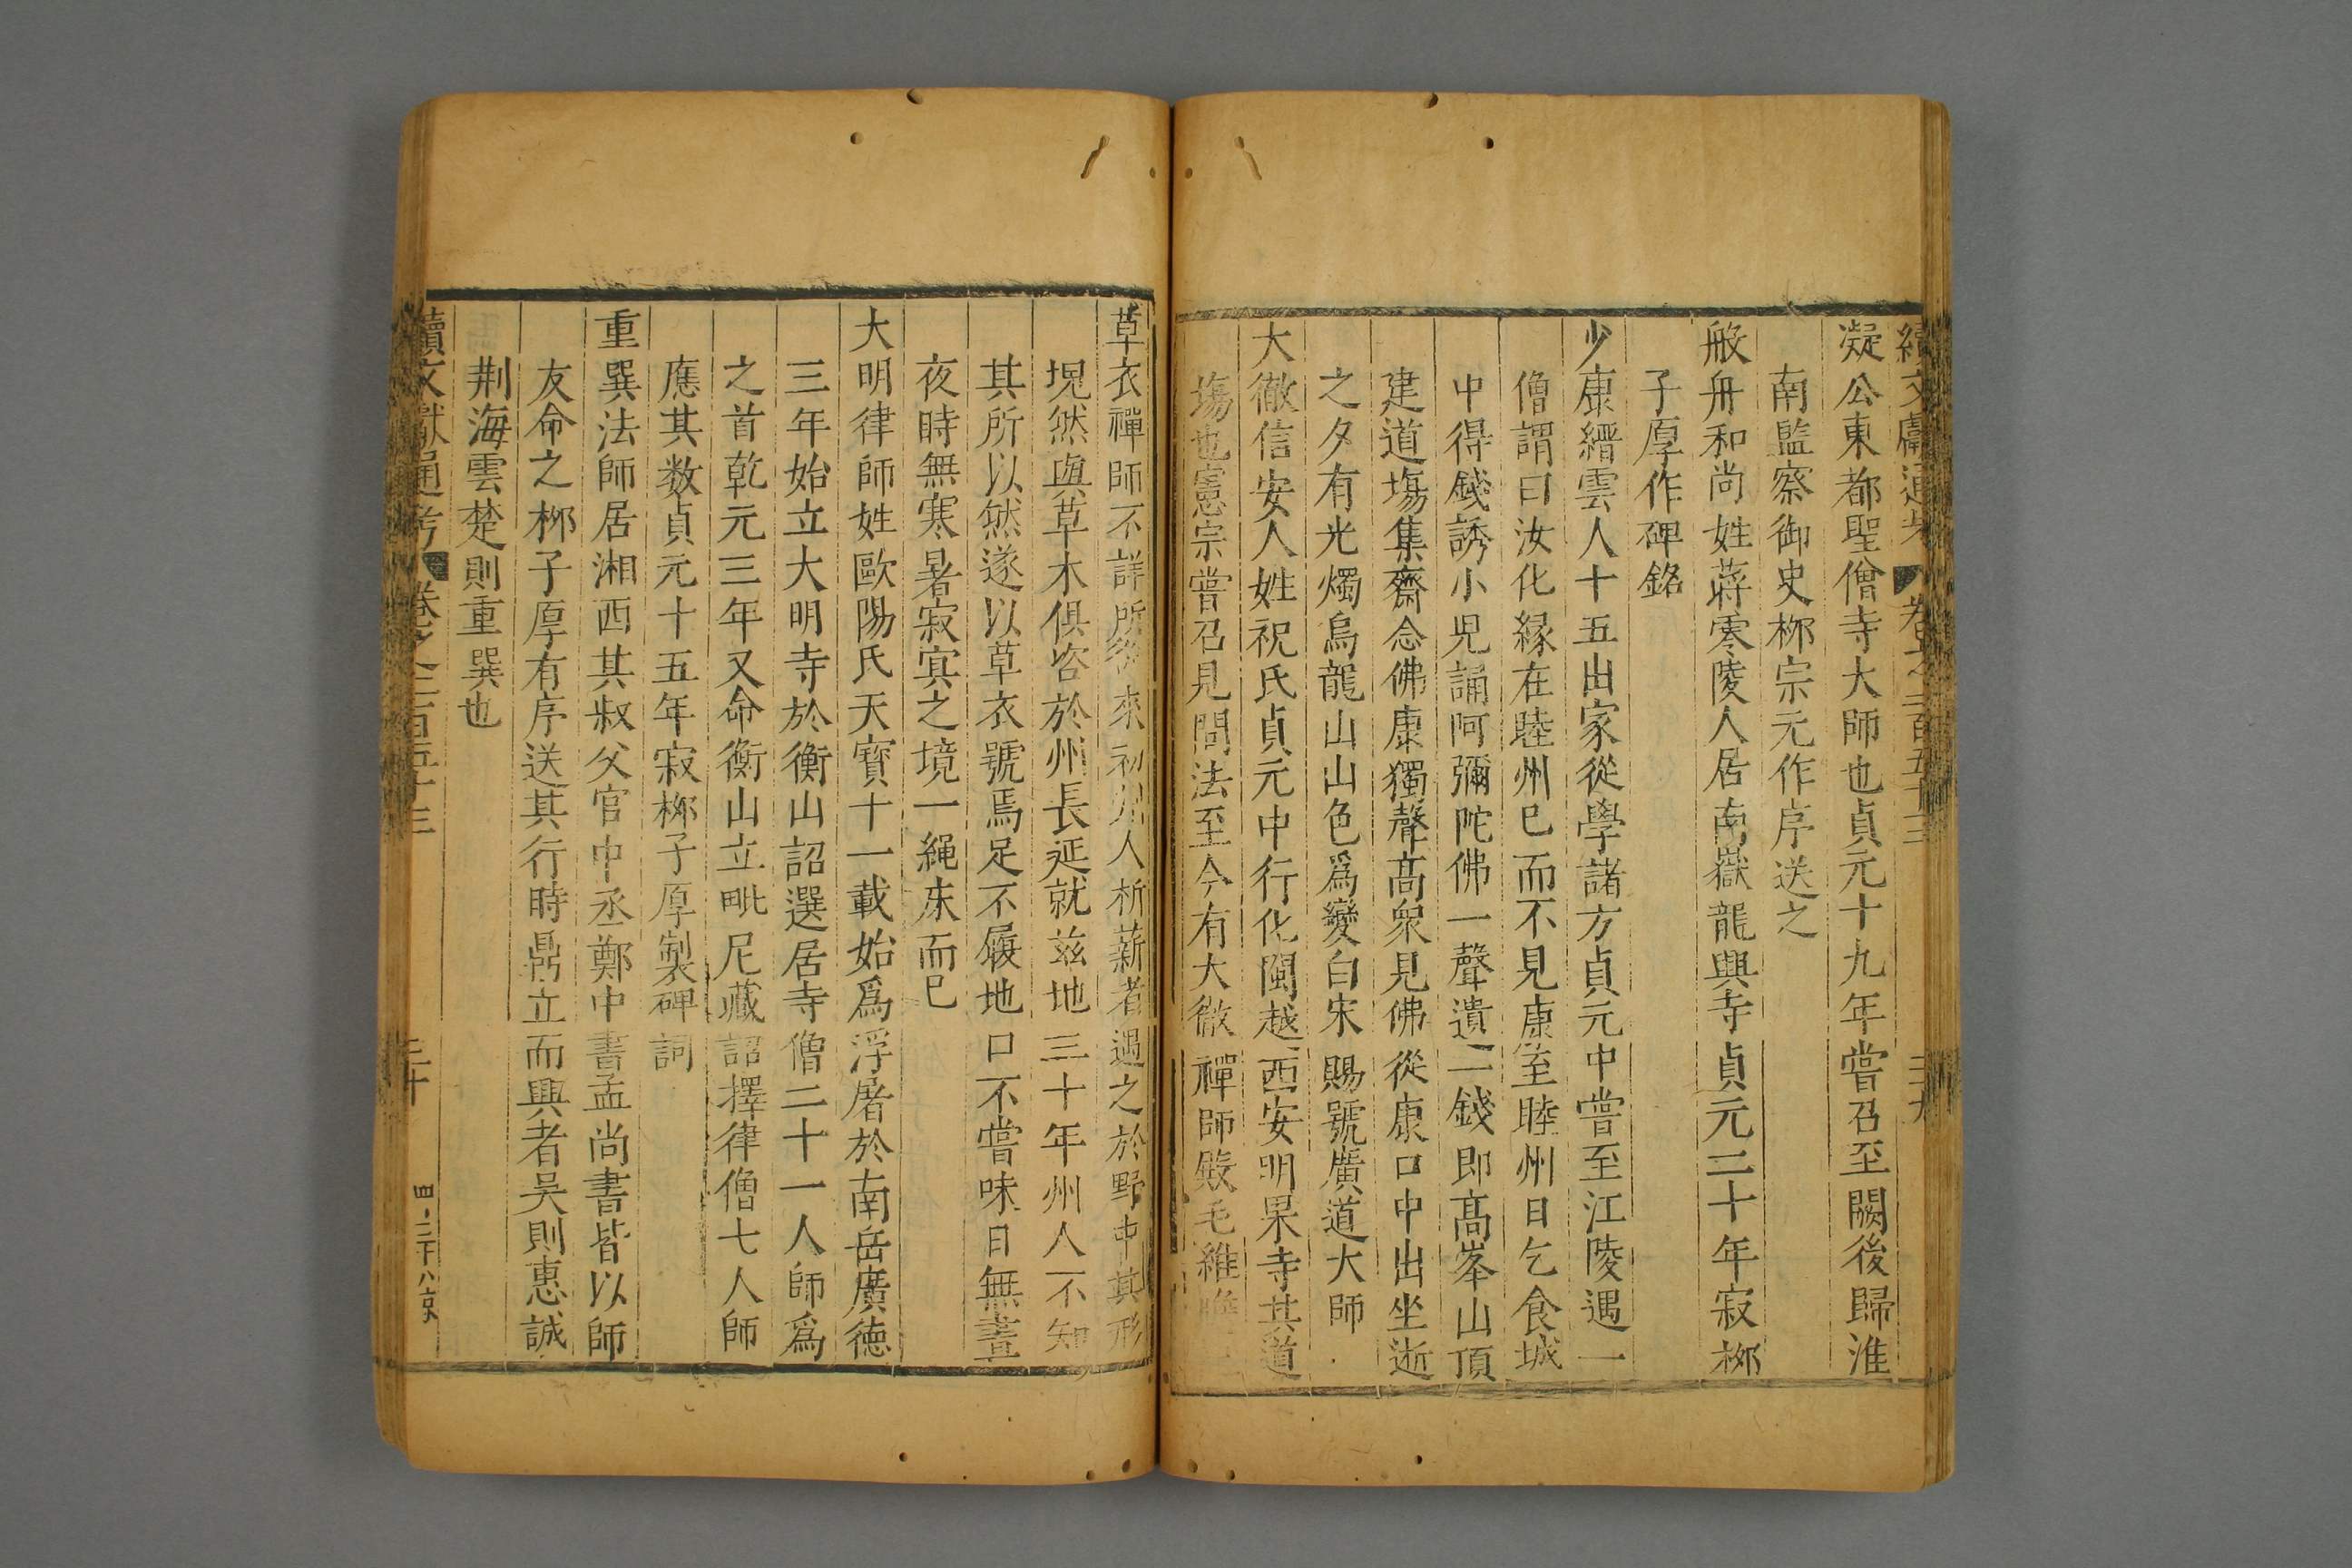 續文獻通考 卷之二百五十三 二十九
凝公東都聖僧寺大師也貞元十九年嘗召至闕後歸淮
南監察御史栁宗元作序送之
般舟和尚姓蔣零陵人居南嶽龍興寺貞元二十年寂栁
子厚作碑銘
少康縉雲人十五出家從學諸方貞元中嘗至江陵遇一
僧謂曰汝化縁在睦州已而不見康至睦州日乞食城
中得錢誘小兒誦阿彌陀佛一聲遺一錢即髙峯山頂
建道塲集齋念佛康獨聲髙衆見佛從康口中出坐逝
之夕有光燭烏龍山山色爲變白宋賜號廣道大師
大徹信安人姓祝氏貞元中行化閩越西安明果寺其道
塲也憲宗嘗召見問法至今有大徹禪師殿毛維
草衣禪師不詳所從來初州人析薪者遇之於野中其形
塊然與草木俱咨於州長延就兹地三十年州人不知
其所以然遂以草衣號焉足不履地口不嘗味日無晝
夜時無寒暑寂寞之境一繩床而已
大明律師姓歐陽氏天寳十一載始爲浮屠於南岳廣德
三年始立大明寺於衡山詔選居寺僧二十一人師爲
之首乾元三年又命衡山立毗尼藏詔擇律僧七人師
應其数貞元十五年寂栁子厚製碑詞
重巽法師居湘西其叔父官中丞鄭中書孟尚書皆以師
友命之栁子厚有序送其行時鼎立而興者吴則恵誠
荆海雲楚則重巽也
續文獻通考 卷之二百五十三 三十